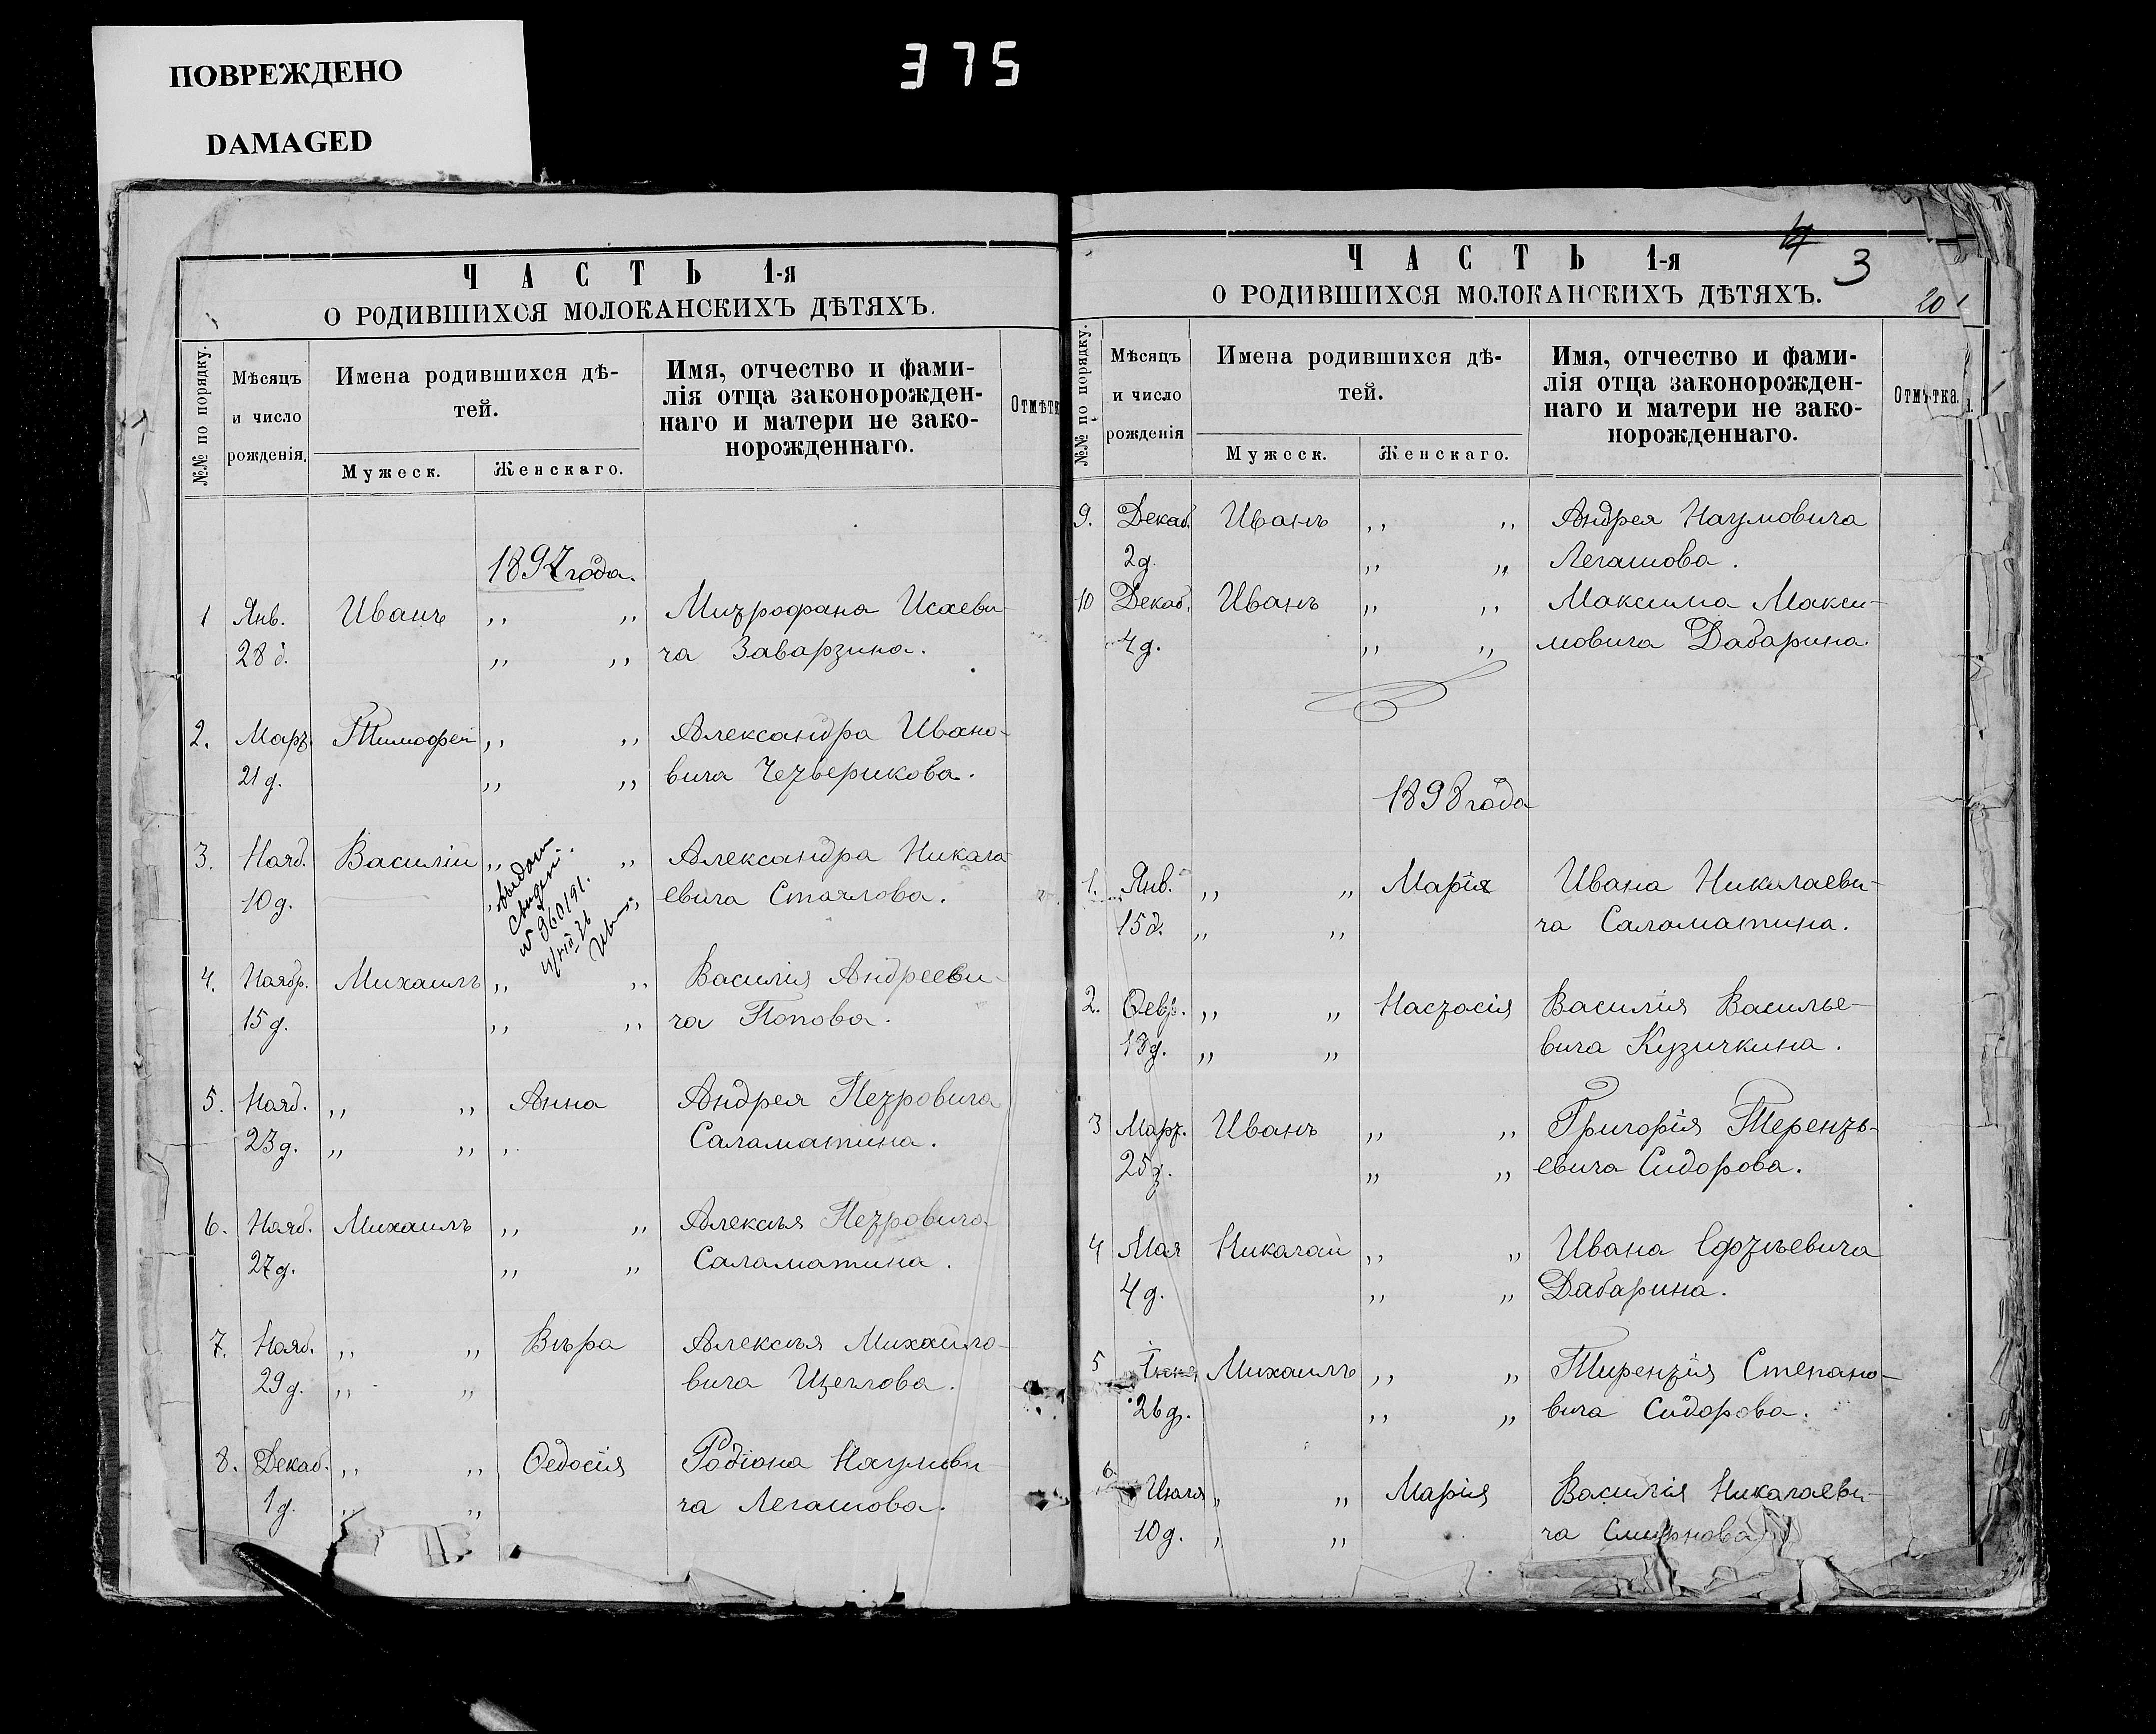 ПОВРЕЖДЕНО
DAMAGED
375
ЧАСТЬ 1-я
О РОДИВШИХСЯ МОЛОКАНСКИХЪ ДѢТЯХЪ.
№№ по порядку.
Мѣсяцъ
и число
рожденія.
Имена родившихся дѣ-
тей.
Мужеск.
Женскаго.
Имя, отчество и фами-
лія отца законорожден-
наго и матери не зако-
норожденнаго.
Отмѣтк
1897 года.
1 Янв. Иванъ ,, ,, Митрофана Исаеви-
28 д. ,, ,, ча Заварзина.
2. Март. Тимофей ,, ,, Александра Ивано-
21 д. ,, ,, вича Четверикова.
3. Нояб. Василій ,, ,, Александра Никала-
10 д. ,, ,, евича Стоялова.
Выдан
свидет.
№ 960191.
4. Ноябр. Михаилъ ,, ,, Василія Андрееви-
15 д. ,, ,, ча Попова.
5. Нояб. ,, ,, Анна Андрея Петровича
23 д. ,, ,, Саламатина.
6. Нояб. Михаилъ ,, ,, Алексѣя Петровича
27 д. ,, ,, Саламатина.
7. Нояб. ,, ,, Вѣра Алексѣя Михайло-
29 д. ,, ,, вича Щеглова.
8. Декаб. ,, ,, Ѳедосія Родіона Наумови-
1 д. ,, ,, ча Легашова.
3
20
ЧАСТЬ 1-я
О РОДИВШИХСЯ МОЛОКАНСКИХЪ ДѢТЯХЪ.
№№ по порядку.
Мѣсяцъ
и число
рожденія
Имена родившихся дѣ-
тей.
Мужеск.
Женскаго.
Имя, отчество и фами-
лія отца законорожден-
наго и матери не зако-
норожденнаго.
Отмѣтка.
9. Декаб. Иванъ ,, ,, Андрея Наумовича
2 д. ,, ,, Легашова.
10 Декаб. Иванъ ,, ,, Максима Макси-
4 д. ,, ,, мовича Дабарина.
1898 года
1. Янв. ,, ,, Марія Ивана Николаеви-
15 д. ,, ,, ча Саламатина.
2. Февр. ,, ,, Настасія Василія Василье-
13 д. ,, ,, вича Кузичкина.
3 Март. Иванъ ,, ,, Григорія Теренть-
25 д. ,, ,, евича Сидорова.
4 Мая Никалай ,, ,, Ивана Ефтѣевича
4 д. ,, ,, Дабарина.
5 Іюня Михаилъ ,, ,, Тирентія Степано-
26 д. ,, ,, вича Сидорова.
6. Июля ,, ,, Марія Василія Никалаеви-
10 д. ,, ,, ча Смирнова